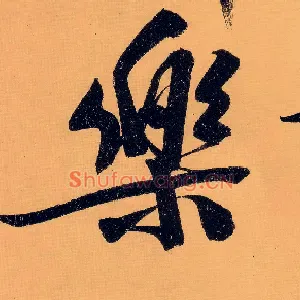 樂
Shufawang.CN